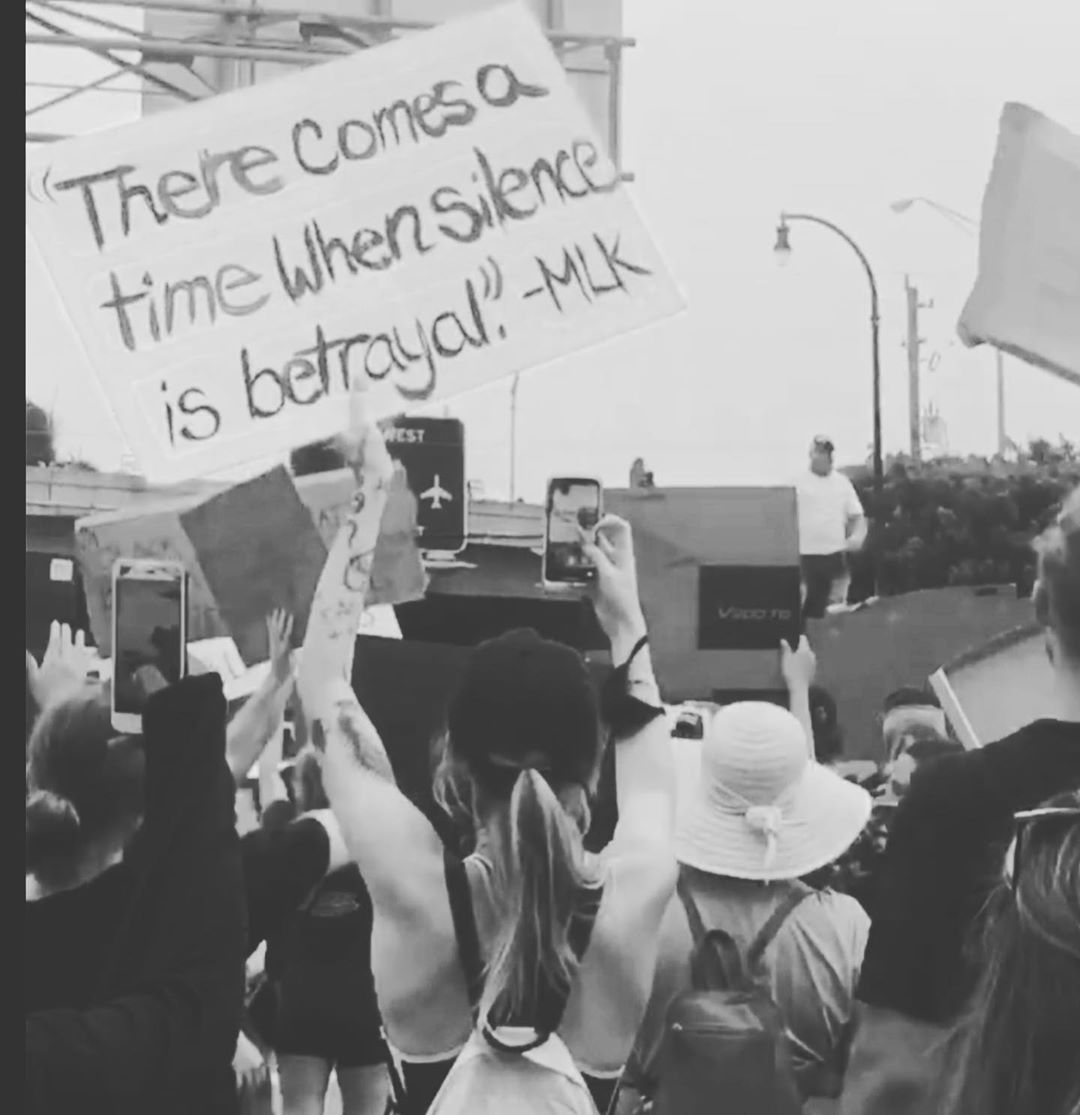 “There Comes a
time When silence
is betrayal”. -MLK
WEST